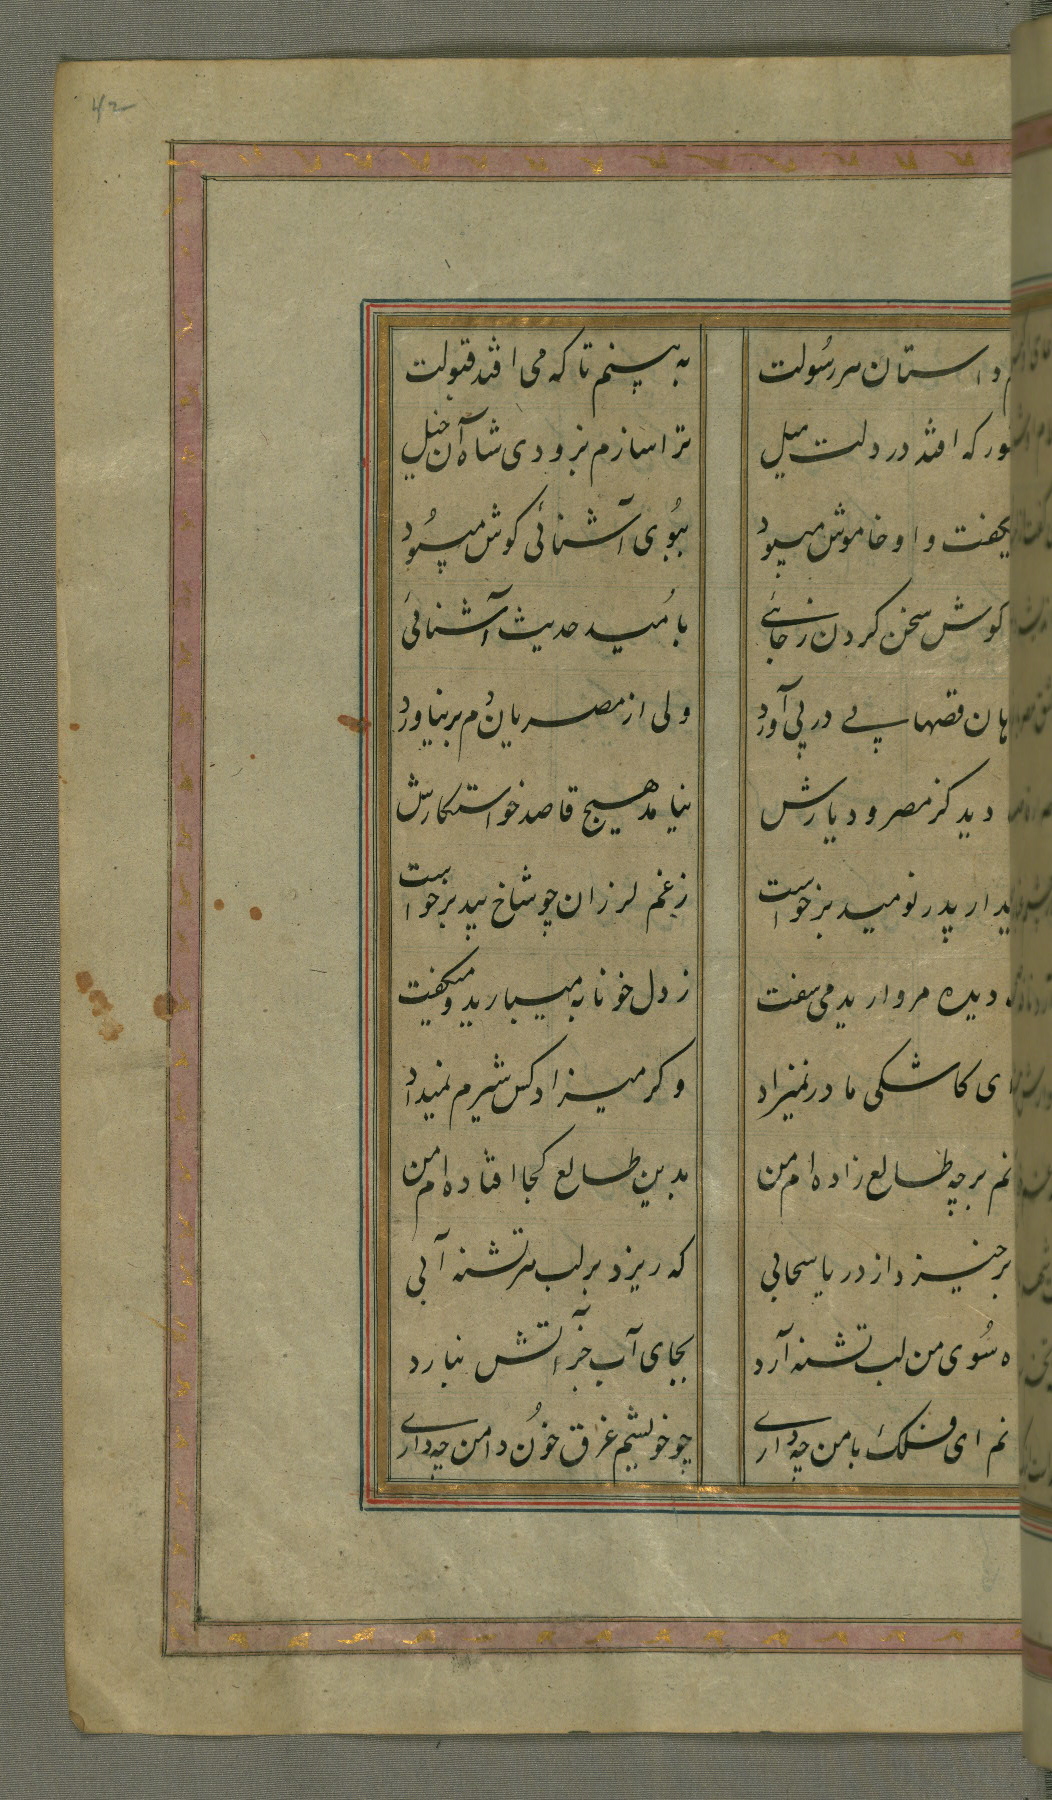 42
و استان سر رسولت
به بینم تا که می افتد قبولت
که افتد در دلت میل
ترا سازم بزودی شاه آن خیل
و او خاموش میبود
ببوی آشنائی گوش میبود
گوش سخن کردن رجائے
بامید حدیث آشنائی
قصهای پی در پی آورد
ولی از مصریان دم بر نیاورد
دید کز مصر و دیارش
نیامد هیچ قاصد خواستکارش
پدر نومید برخواست
ز غم لرزان چو شاخ بید برخواست
دیده مروارید می سفت
ز دل خونابه میبارید و میکفت
ای کاشکی مادر نمیزاد
وکر میزاد کس شیرم نمیداد
نم بر چه طالع زاده ام من
بدین طالع کجا افتاده ام من
بر خیزد از دریا سحابی
که ریزد بر لب هر تشنه آبی
سوی من لب تشنه آرد
بجای آب جز آتش نبارد
نم ای فلک با من چه داری
چو خویشم غرق خون دامن چه داری